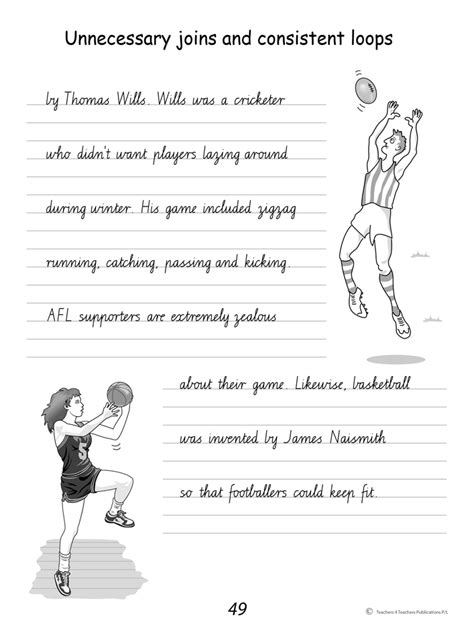 Unnecessary joins and consistent loops
by Thomas Wills. Wills was a cricketer
who didn't want players lazing around
during winter. His game included zigzag
running, catching, passing and kicking.
AFL supporters are extremely zealous
about their game. Likewise, basketball
was invented by James Naismith
so that footballers could keep fit.
5
49
© Teachers 4 Teachers Publications P/L